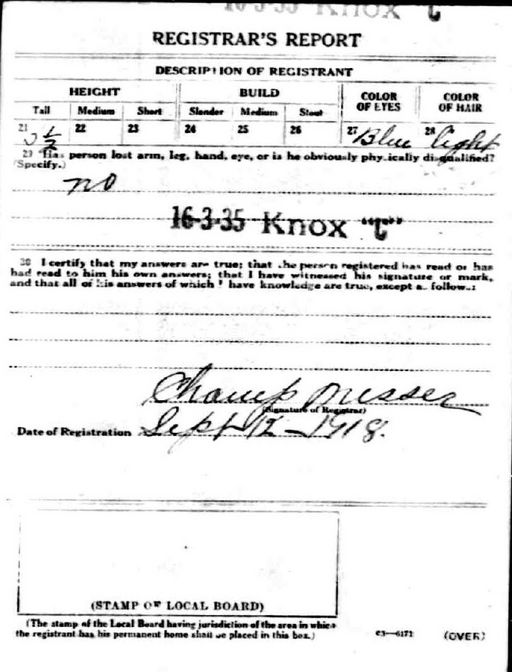 16-3-35 Knox "C"
REGISTRAR'S REPORT
DESCRIPTION OF REGISTRANT
HEIGHT BUILD COLOR OF EYES COLOR OF HAIR
Tall Medium Short Slender Medium Stout
21 22 23 24 25 26 27 Blue 28 light
29 Has person lost arm, leg, hand, eye, or is he obviously physically disqualified?
(Specify.)
no
16-3-35 Knox "C"
30 I certify that my answers are true; that the person registered has read or has
had read to him his own answers; that I have witnessed his signature or mark,
and that all of his answers of which I have knowledge are true, except as follows:
Champ Musser
(Signature of Registrar)
Date of Registration Sept 12-1918.
(STAMP OF LOCAL BOARD)
(The stamp of the Local Board having jurisdiction of the area in which
the registrant has his permanent home shall be placed in this box.)
03-6171 (OVER)